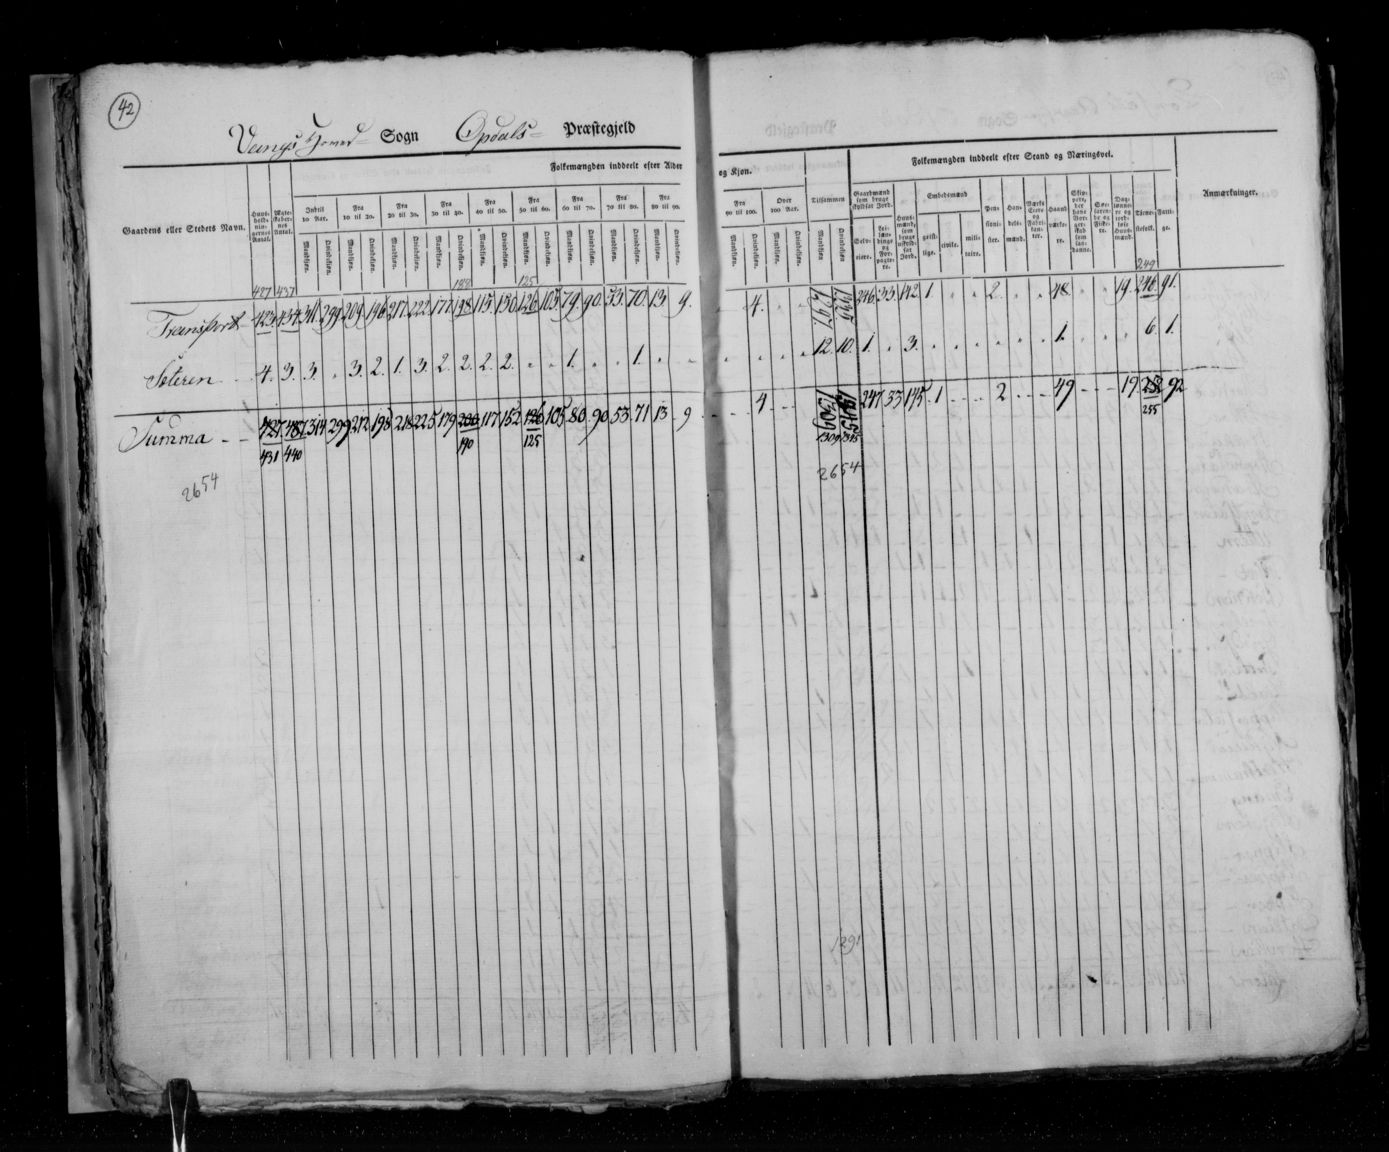 42
Vangs Hoved Sogn Opdals Præstegjeld
Folkemængden inddeelt efter Alder
og Kjøn.
Folkemængden inddeelt efter Stand og Næringsvei.
Gaardens eller Stedets Navn.
Huus-holdningernes Antal.
Ægteskabernes Antal.
Indtil 10 Aar.
Fra 10 til 20.
Fra 20 til 30.
Fra 30 til 40.
Fra 40 til 50.
Fra 50 til 60.
Fra 60 til 70.
Fra 70 til 80.
Fra 80 til 90.
Fra 90 til 100.
Over 100 Aar.
Tilsammen
Mandkjøn. Qvindekjøn.
Gaardmænd som bruge skyldsat Jord.
Selveiere.
Leilændinge og Forpagtere.
Huusmænd, som bruge uskyldsat Jord.
Embedsmænd
geistlige.
civile.
militaire.
Pensionister.
Handelsmænd.
Værks Eiere og Fabrikanter.
Haandværkere.
Dagslønnere og jordløse Huusmænd.
Tjenestefolk.
Fattige.
Anmærkninger.
427 437 125 249
Transport 423 434 311 299 209 196 217 222 177 198 115 150 126 105 79 90 53 70 13 9 4 1297 1335 246 33 142 1 2 48 19 246 91
Sæteren 4. 3. 3. 3. 2. 1. 3. 2. 2. 2. 2. 1. 1. 12. 10. 1. 3. 1. 6. 1.
Summa 427 437 314 299 212 198 218 225 179 200 117 152 126 105 80 90 53 71 13 9 4 1309 1345 247 33 145 1 2 49 19 252 92
431 440 190 125 1309 1345 255
2654
2654
1391